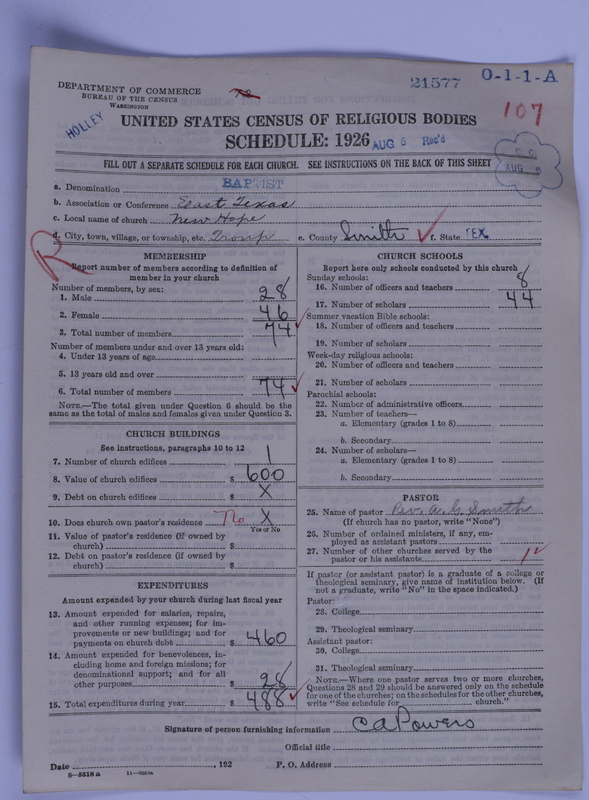 21577 0-1-1-A
DEPARTMENT OF COMMERCE
BUREAU OF THE CENSUS
WASHINGTON
107
HOLLEY
UNITED STATES CENSUS OF RELIGIOUS BODIES
SCHEDULE: 1926 AUG 6 Rec'd
AUG 5
FILL OUT A SEPARATE SCHEDULE FOR EACH CHURCH. SEE INSTRUCTIONS ON THE BACK OF THIS SHEET
a. Denomination BAPTIST
b. Association or Conference East Texas
c. Local name of church New Hope
d. City, town, village, or township, etc. Troup e. County Smith f. State TEX
R
MEMBERSHIP
Report number of members according to definition of
member in your church
Number of members, by sex:
1. Male 28
2. Female 46
3. Total number of members 74
Number of members under and over 13 years old:
4. Under 13 years of age
5. 13 years old and over
6. Total number of members 74
NOTE.—The total given under Question 6 should be the
same as the total of males and females given under Question 3.
CHURCH BUILDINGS
See instructions, paragraphs 10 to 12
7. Number of church edifices 1
8. Value of church edifices $ 600
9. Debt on church edifices $ X
10. Does church own pastor's residence No X
Yes or No
11. Value of pastor's residence (if owned by
church) $
12. Debt on pastor's residence (if owned by
church) $
EXPENDITURES
Amount expended by your church during last fiscal year
13. Amount expended for salaries, repairs,
and other running expenses; for im-
provements or new buildings; and for
payments on church debt $ 460
14. Amount expended for benevolences, in-
cluding home and foreign missions; for
denominational support; and for all
other purposes $ 28
15. Total expenditures during year $ 488
CHURCH SCHOOLS
Report here only schools conducted by this church
Sunday schools:
16. Number of officers and teachers 8
17. Number of scholars 44
Summer vacation Bible schools:
18. Number of officers and teachers
19. Number of scholars
Week-day religious schools:
20. Number of officers and teachers
21. Number of scholars
Parochial schools:
22. Number of administrative officers
23. Number of teachers—
a. Elementary (grades 1 to 8)
b. Secondary
24. Number of scholars—
a. Elementary (grades 1 to 8)
b. Secondary
PASTOR
25. Name of pastor Rev. A. G. Smith
(If church has no pastor, write "None")
26. Number of ordained ministers, if any, em-
ployed as assistant pastors
27. Number of other churches served by the
pastor or his assistants
If pastor (or assistant pastor) is a graduate of a college or
theological seminary, give name of institution below. (If
not a graduate, write "No" in the space indicated.)
Pastor:
28. College
29. Theological seminary
Assistant pastor:
30. College
31. Theological seminary
NOTE.—Where one pastor serves two or more churches,
Questions 28 and 29 should be answered only on the schedule
for one of the churches; on the schedules for the other churches,
write "See schedule for church."
Signature of person furnishing information C A Powers
Official title
Date , 192 P. O. Address
S-5518 a